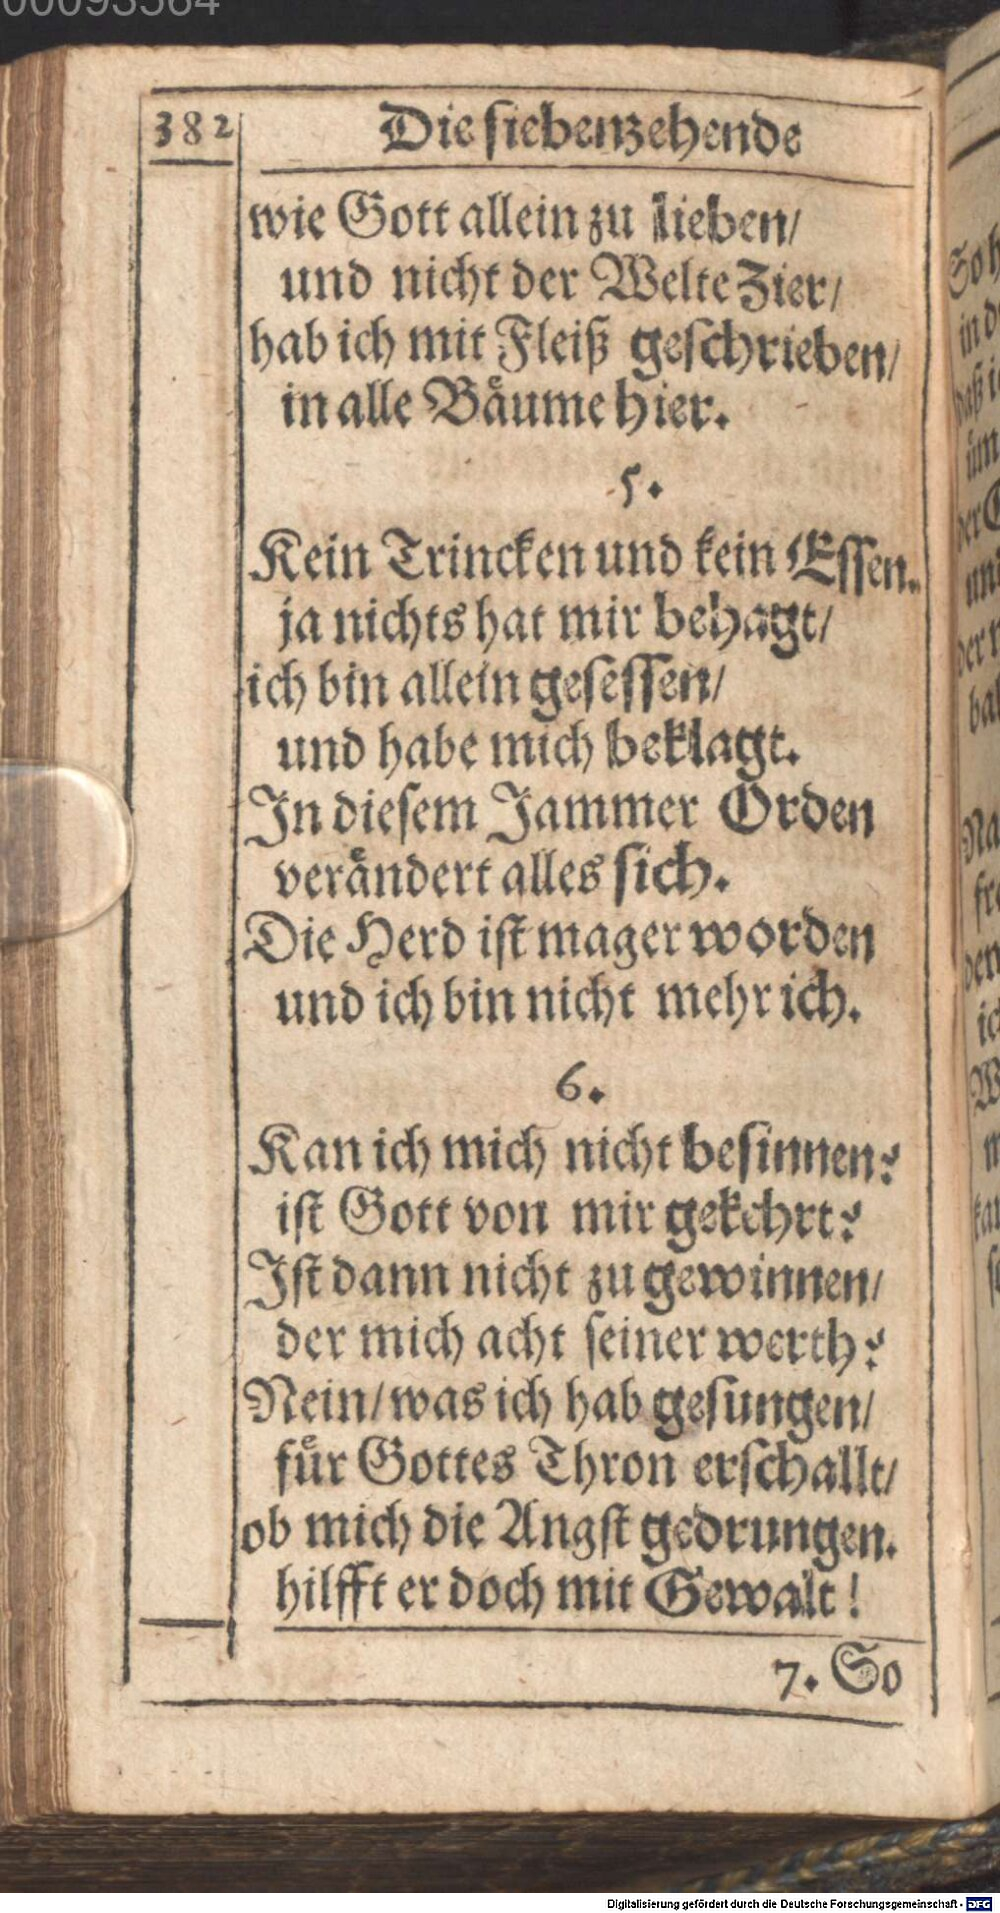 382 Die siebenzehende
wie Gott allein zu lieben/
und nicht der Welte Zier/
hab ich mit Fleiß geschrieben/
in alle Baͤume hier.
5.
Kein Trincken und kein Essen.
ja nichts hat mir behagt/
ich bin allein gesessen/
und habe mich beklagt.
In diesem Jammer Orden
veraͤndert alles sich.
Die Herd ist mager worden
und ich bin nicht mehr ich.
6.
Kan ich mich nicht besinnen?
ist Gott von mir gekehrt?
Ist dann nicht zu gewinnen/
der mich acht seiner werth?
Nein/ was ich hab gesungen/
fuͤr Gottes Thron erschallt/
ob mich die Angst gedrungen.
hilfft er doch mit Gewalt!
7. So
Digitalisierung gefördert durch die Deutsche Forschungsgemeinschaft - DFG